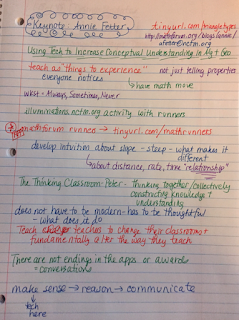 Keynote Annie Fetter
tinyurl.com/
mathforum.org/blogs/annie/
@nctm.org
Using Tech to Increase Conceptual Understanding in Alg + Geo
teach as "things to experience" not just telling properties
everyone notices
↳ have math move
WKST - Always, Sometimes, Never
illuminations.nctm.org activity with runners
mathforum runners → tinyurl.com/mathrunners
develop intuition about slope - steep - what makes it different
↳ about distance, rate, time "relationship"
The Thinking Classroom - thinking together/collectively
constructing knowledge +
understanding
does not have to be modern - has to be thoughtful
- what does it do
Teach teachers to change their classrooms +
fundamentally alter the way they teach
There are not endings in the apps or awards
= conversations
make sense → reason → communicate
↓
tech
here